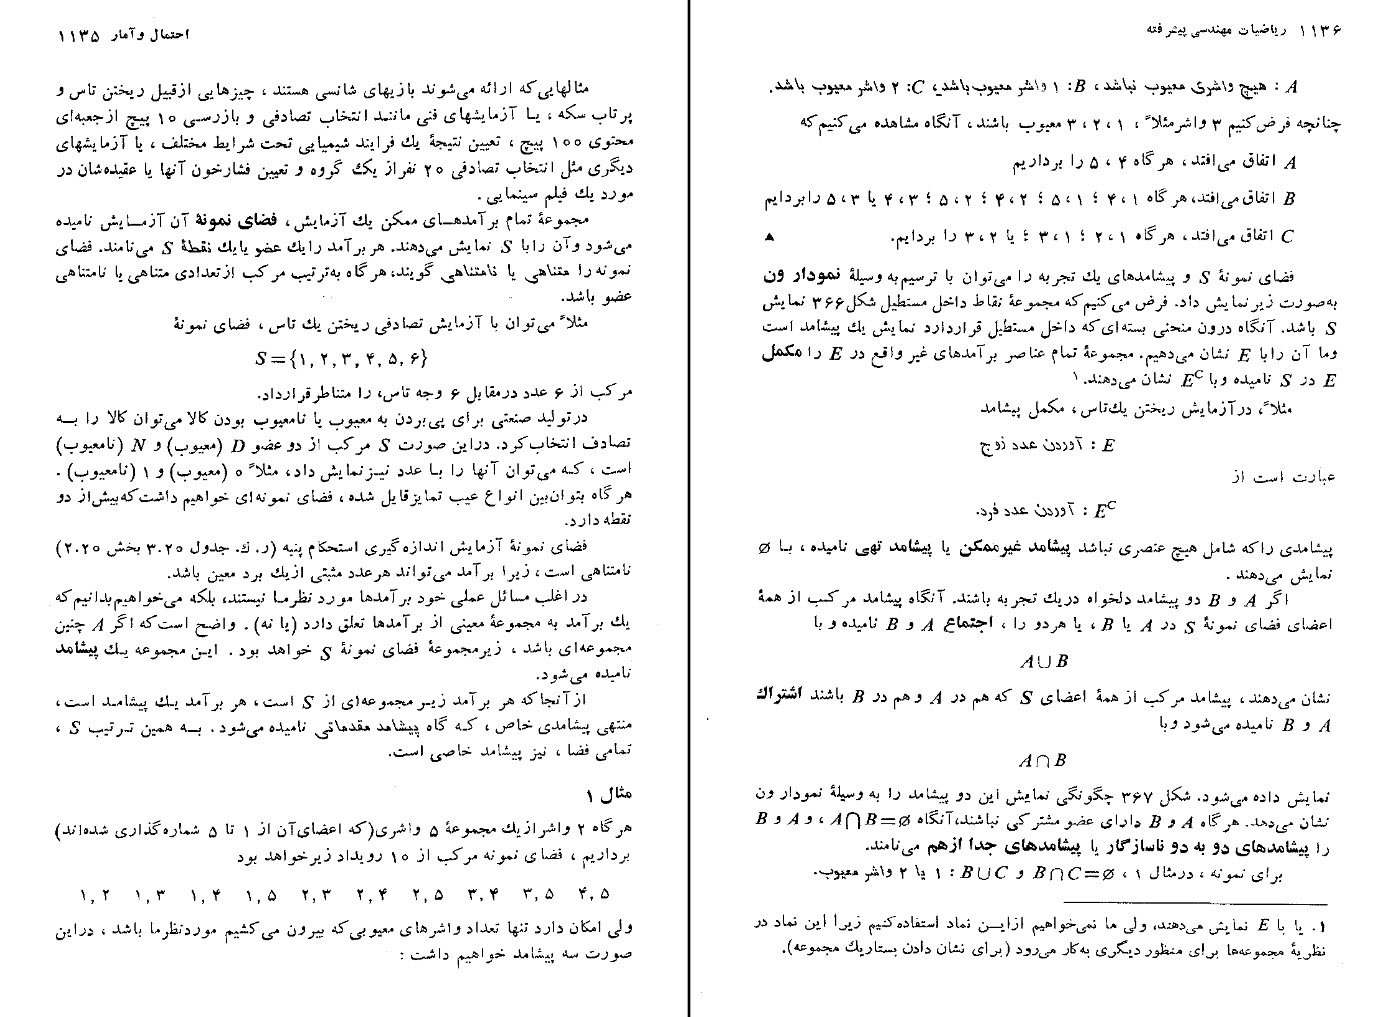 احتمال و آمار ۱۱۳۵
مثالهایی که ارائه می‌شوند بازیهای شانسی هستند، چیزهایی از قبیل ریختن تاس و
پرتاب سکه، یا آزمایشهای فنی مانند انتخاب تصادفی و بازرسی ۱۰ پیچ از جعبه‌ای
محتوی ۱۰۰ پیچ، تعیین نتیجهٔ یک فرایند شیمیایی تحت شرایط مختلف، یا آزمایشهای
دیگری مثل انتخاب تصادفی ۲۰ نفر از یک گروه و تعیین فشارخون آنها یا عقیده‌شان در
مورد یک فیلم سینمایی.
مجموعهٔ تمام برآمدهای ممکن یک آزمایش، فضای نمونهٔ آن آزمایش نامیده
می‌شود و آن را با S نمایش می‌دهند. هر برآمد را یک عضو یا یک نقطهٔ S می‌نامند. فضای
نمونه را متناهی یا نامتناهی گویند، هرگاه به‌ترتیب مرکب از تعدادی متناهی یا نامتناهی
عضو باشد.
مثلاً می‌توان با آزمایش تصادفی ریختن یک تاس، فضای نمونهٔ
S={۱, ۲, ۳, ۴, ۵, ۶}
مرکب از ۶ عدد در مقابل ۶ وجه تاس، را متناظر قرار داد.
در تولید صنعتی برای پی‌بردن به معیوب یا نامعیوب بودن کالا می‌توان کالا را به
تصادف انتخاب کرد. در این صورت S مرکب از دو عضو D (معیوب) و N (نامعیوب)
است، که می‌توان آنها را با عدد نیز نمایش داد، مثلاً ۰ (معیوب) و ۱ (نامعیوب).
هرگاه بتوان بین انواع عیب تمایز قایل شده، فضای نمونه‌ای خواهیم داشت که بیش از دو
نقطه دارد.
فضای نمونهٔ آزمایش اندازه‌گیری استحکام پنبه (ر. ک. جدول ۳.۲۰ بخش ۲.۲۰)
نامتناهی است، زیرا برآمد می‌تواند هر عدد مثبتی از یک برد معین باشد.
در اغلب مسائل عملی خود برآمدها مورد نظر ما نیستند، بلکه می‌خواهیم بدانیم که
یک برآمد به مجموعهٔ معینی از برآمدها تعلق دارد (یا نه). واضح است که اگر A چنین
مجموعه‌ای باشد، زیرمجموعهٔ فضای نمونهٔ S خواهد بود. این مجموعه یک پیشامد
نامیده می‌شود.
از آنجا که هر برآمد زیر مجموعه‌ای از S است، هر برآمد یک پیشامد است،
منتهی پیشامدی خاص، که گاه پیشامد مقدماتی نامیده می‌شود. به همین ترتیب S،
تمامی فضا، نیز پیشامد خاصی است.
مثال ۱
هرگاه ۲ واشر از یک مجموعهٔ ۵ واشری (که اعضای آن از ۱ تا ۵ شماره‌گذاری شده‌اند)
برداریم، فضای نمونه مرکب از ۱۰ رویداد زیر خواهد بود
۱,۲ ۱,۳ ۱,۴ ۱,۵ ۲,۳ ۲,۴ ۲,۵ ۳,۴ ۳,۵ ۴,۵
ولی امکان دارد تنها تعداد واشرهای معیوبی که بیرون می‌کشیم مورد نظر ما باشد، در این
صورت سه پیشامد خواهیم داشت:
۱۱۳۶ ریاضیات مهندسی پیشرفته
A: هیچ واشری معیوب نباشد، B: ۱ واشر معیوب باشد، C: ۲ واشر معیوب باشد.
چنانچه فرض کنیم ۳ واشر مثلاً، ۱، ۲، ۳ معیوب باشند، آنگاه مشاهده می‌کنیم که
A اتفاق می‌افتد، هرگاه ۴، ۵ را برداریم
B اتفاق می‌افتد، هرگاه ۱، ۴؛ ۱، ۵؛ ۲، ۴؛ ۲، ۵؛ ۳، ۴ یا ۳، ۵ را بردایم
C اتفاق می‌افتد، هرگاه ۱، ۲؛ ۱، ۳؛ یا ۲، ۳ را بردایم. ▲
فضای نمونهٔ S و پیشامدهای یک تجربه را می‌توان با ترسیم به وسیلهٔ نمودار ون
به‌صورت زیر نمایش داد. فرض می‌کنیم که مجموعهٔ نقاط داخل مستطیل شکل ۳۶۶ نمایش
S باشد. آنگاه درون منحنی بسته‌ای که داخل مستطیل قرار دارد نمایش یک پیشامد است
و ما آن را با E نشان می‌دهیم. مجموعهٔ تمام عناصر برآمدهای غیر واقع در E را مکمل
E در S نامیده و با E^C نشان می‌دهند.۱
مثلاً، در آزمایش ریختن یک تاس، مکمل پیشامد
E: آوردن عدد زوج
عبارت است از
E^C: آوردن عدد فرد.
پیشامدی را که شامل هیچ عنصری نباشد پیشامد غیرممکن یا پیشامد تهی نامیده، با ∅
نمایش می‌دهند.
اگر A و B دو پیشامد دلخواه در یک تجربه باشند. آنگاه پیشامد مرکب از همهٔ
اعضای فضای نمونهٔ S در A یا B، یا هر دو را، اجتماع A و B نامیده و با
A∪B
نشان می‌دهند، پیشامد مرکب از همهٔ اعضای S که هم در A و هم در B باشند اشتراک
A و B نامیده می‌شود و با
A∩B
نمایش داده می‌شود. شکل ۳۶۷ چگونگی نمایش این دو پیشامد را به وسیلهٔ نمودار ون
نشان می‌دهد. هرگاه A و B دارای عضو مشترکی نباشند، آنگاه A∩B=∅، و A و B
را پیشامدهای دو به دو ناسازگار یا پیشامدهای جدا از هم می‌نامند.
برای نمونه، در مثال ۱، B∩C=∅ و B∪C: ۱ یا ۲ واشر معیوب.
۱. یا با E نمایش می‌دهند، ولی ما نمی‌خواهیم از این نماد استفاده کنیم زیرا این نماد در
نظریهٔ مجموعه‌ها برای منظور دیگری به‌کار می‌رود (برای نشان دادن بستار یک مجموعه).